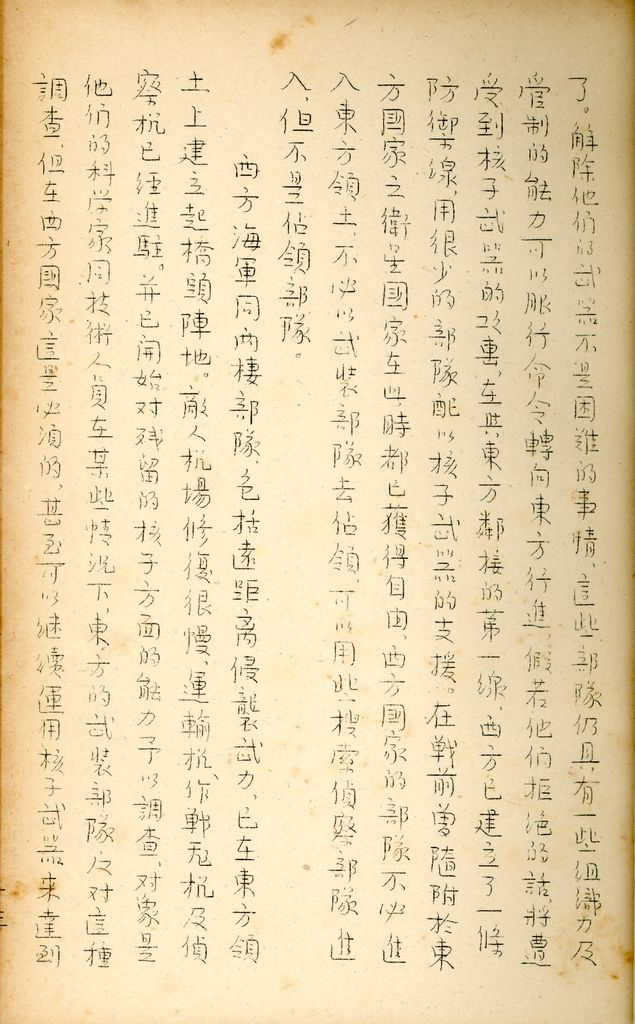 了。解除他们的武器不是困难的事情，這些部隊仍具有一些组織力及
管制的能力可以服行命令轉向東方行進，假若他们拒绝的話，将遭
受到核子武器的攻击，在與東方鄰接的第一線，西方已建立了一條
防御线，用很少的部隊配以核子武器的支援。在戰前曾隨附於東
方國家之衛星國家在此時都已獲得自由，西方國家的部隊不必進
入東方領土，不必以武裝部隊去佔領可以用些搜索偵察部隊進
入，但不是佔領部隊。
西方海軍同两棲部隊，包括遠距离侵襲武力，已在東方領
土上建立起橋頭陣地。敵人机場修復很慢，運輸机作戰飛机及偵
察机已經進駐。并已開始对残留的核子方面的能力予以調查，对象是
他们的科学家同技術人員在某些情况下，東方的武裝部隊反对這種
調查，但在西方國家，這是必須的，甚至可以继續運用核子武器来達到